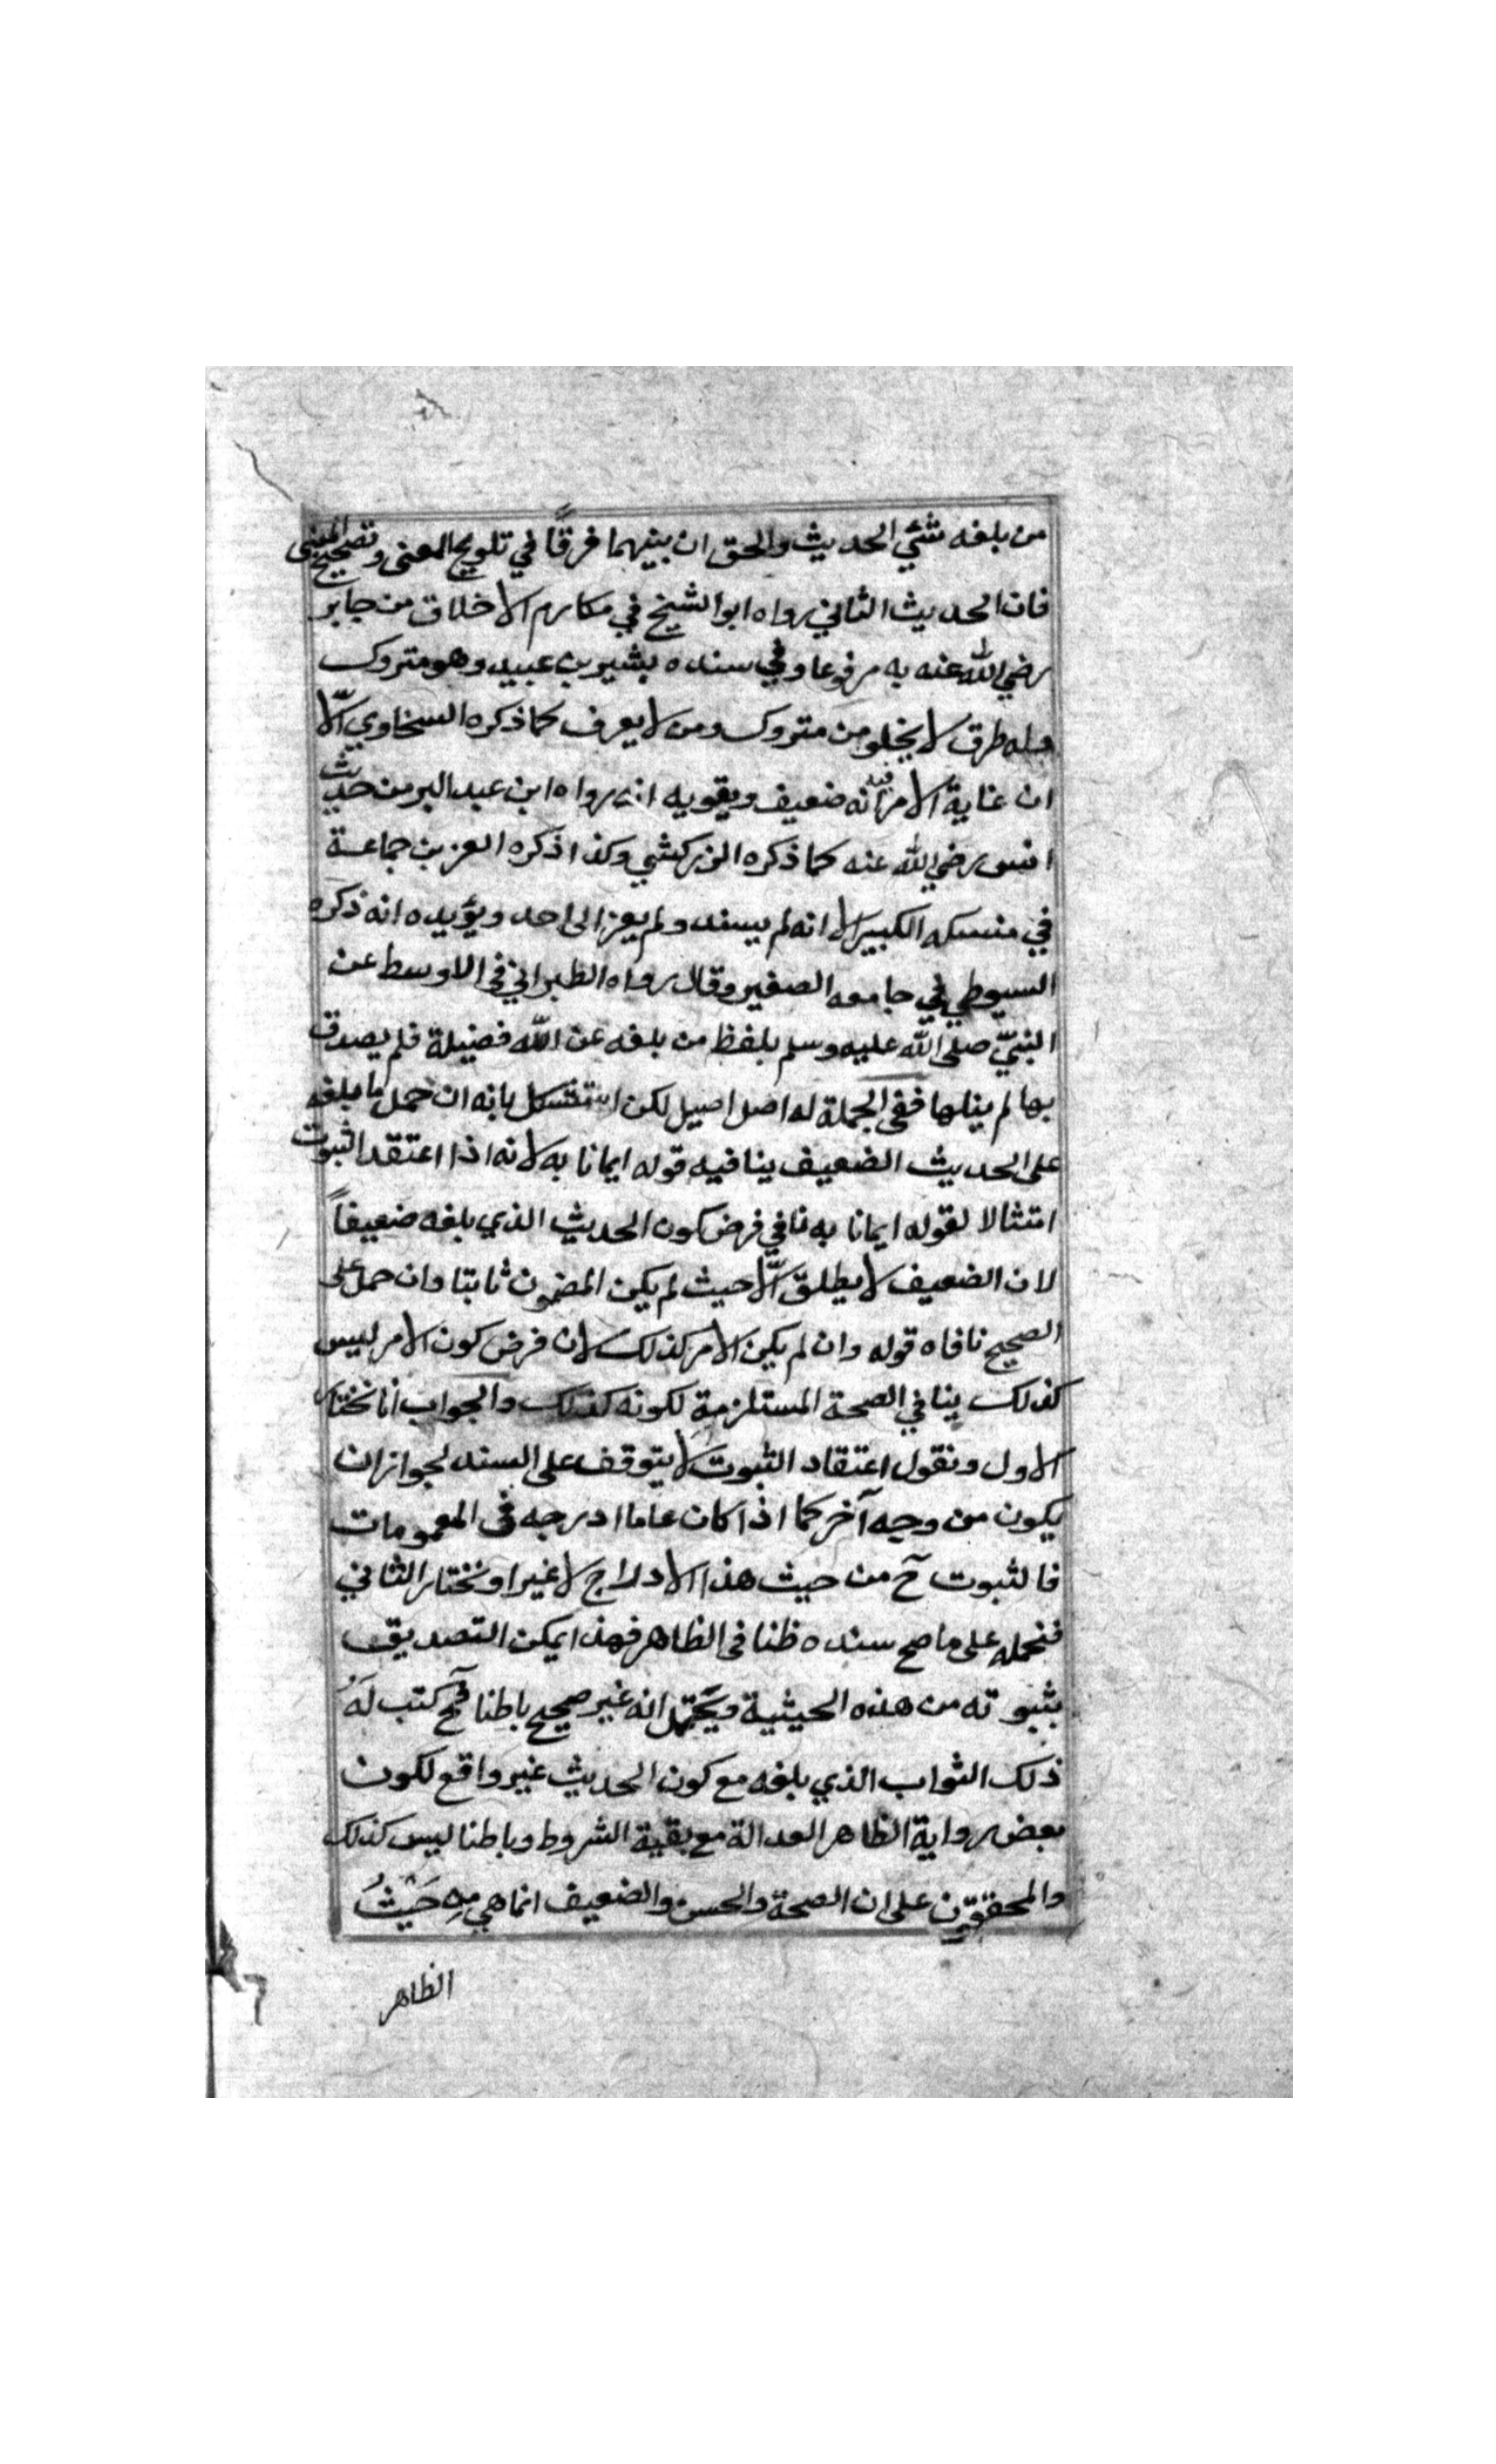 من بلغه شئي الحديث والحق ان بينهما فرقًا في تلويح المعنى وتصحيح المبنى
فان الحديث الثاني رواه ابو الشيخ في مكارم الاخلاق من جابر
رضي الله عنه به مرفوعا وفي سنده بشير بن عبيد وهو متروك
وله طرق لا يخلو من متروك ومن لا يعرف كما ذكره السخاوي الّا
ان غاية الامر فيه انه ضعيف ويقويه انه رواه ابن عبد البر من حديث
انس رضي الله عنه كما ذكره الزركشي وكذا ذكره العز بن جماعة
في منسكه الكبير الا انه لم يسند ولم يعز الى احد ويؤيده انه ذكره
السيوطي في جامعه الصغير وقال رواه الطبراني في الاوسط عن
النبيّ صلى الله عليه وسلم بلفظ من بلغه عن الله فضيلة فلم يصدق
بها لم ينلها ففي الجملة له اصل اصيل لكن استشكل بانه ان حمل ما بلغه
على الحديث الضعيف ينافيه قوله ايمانا به لانه اذا اعتقد الثبوت
امتثالا لقوله ايمانا به نافي فرض كون الحديث الذي بلغه ضعيفاً
لان الضعيف لا يطلق الّا حيث لم يكن المضمون ثابتا وان حمل على
الصحيح نافاه قوله وان لم يكن الامر كذلك لان فرض كون الامر ليس
كذلك ينافي الصحة المستلزمة لكونه كذلك والجواب انا نختار
الاول ونقول اعتقاد الثبوت لا يتوقف على السند لجواز ان
يكون من وجه آخر كما اذا كان عاما ادرجه في العمومات
فالثبوت ح من حيث هذا الادراج لا غير او نختار الثاني
فنحمله على ما صح سنده ظنا في الظاهر فهذا يمكن التصديق
بثبوته من هذه الحيثية ويحتمل انه غير صحيح باطنا فح كتب لَهُ
ذلك الثواب الذي بلغه مع كون الحديث غير واقع لكون
بعض رواية الظاهر العدالة مع بقية الشروط وباطنا ليس كذلك
والمحققون على ان الصحة والحسن والضعيف انما هي مِن حَيْثُ
الظاهر